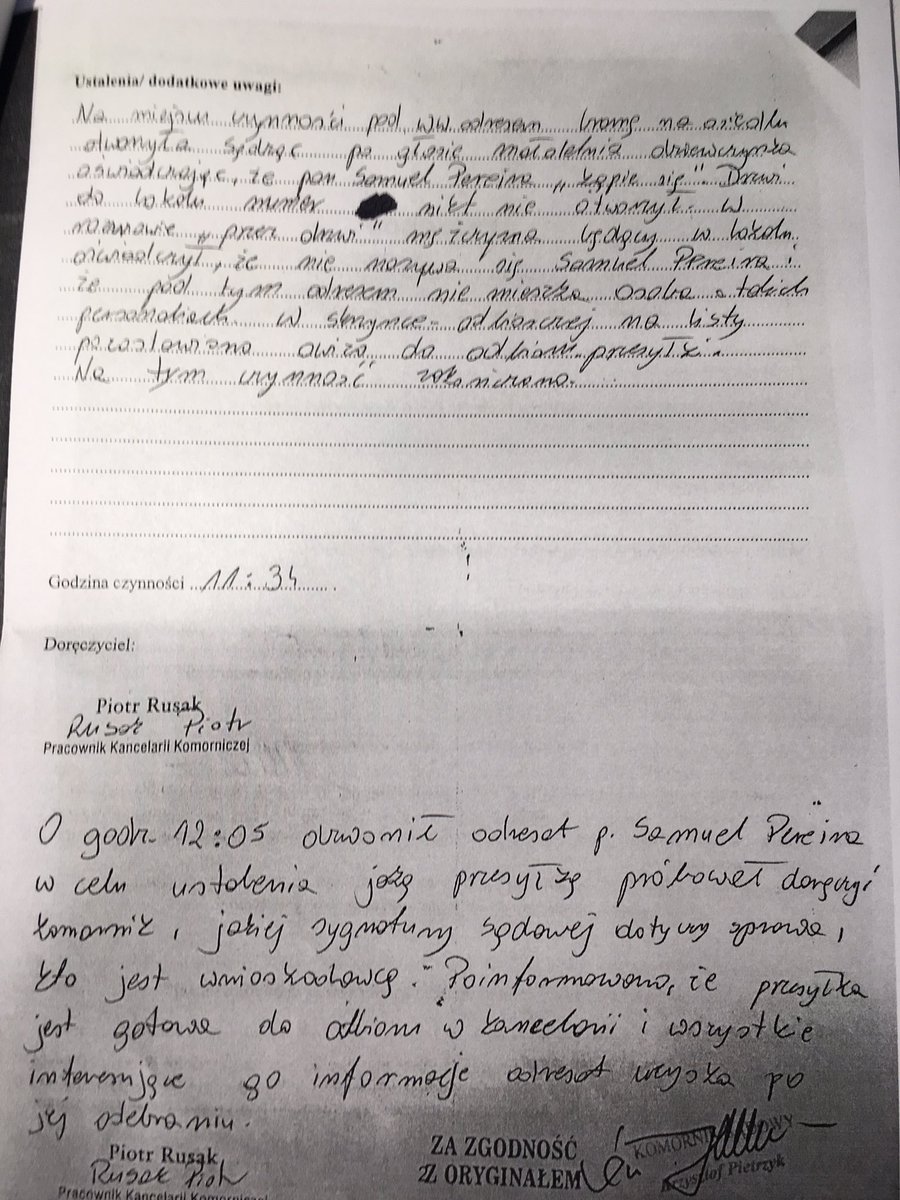 Ustalenia/ dodatkowe uwagi:
Na miejscu czynności pod ww adresem bramę na osiedlu
otworzyła sądząc po głosie małoletnia dziewczynka
oświadczając, że pan Samuel Pereira „kąpie się". Drzwi
do lokalu numer nikt nie otworzył. W
rozmowie „przez drzwi" mężczyzna będący w lokalu
oświadczył, że nie nazywa się Samuel Pereira i
że pod tym adresem nie mieszka osoba o takich
personaliach. W skrzynce odbiorczej na listy
pozostawiono awizo do odbioru przesyłki.
Na tym czynność zakończono.
Godzina czynności 11:34
Doręczyciel:
Piotr Rusak
Rusak Piotr
Pracownik Kancelarii Komorniczej
O godz. 12:05 dzwonił adresat p. Samuel Pereira
w celu ustalenia jaką przesyłkę próbował doręczyć
komornik, jakiej sygnatury sądowej dotyczy sprawa,
kto jest wnioskodawcą. Poinformowano, że przesyłka
jest gotowa do odbioru w kancelarii i wszystkie
interesujące go informacje adresat uzyska po
jej odebraniu.
Piotr Rusak
Rusak Piotr
Pracownik Kancelarii Komorniczej
ZA ZGODNOŚĆ
Z ORYGINAŁEM
KOMORNIK SĄDOWY
Krzysztof Pietrzyk